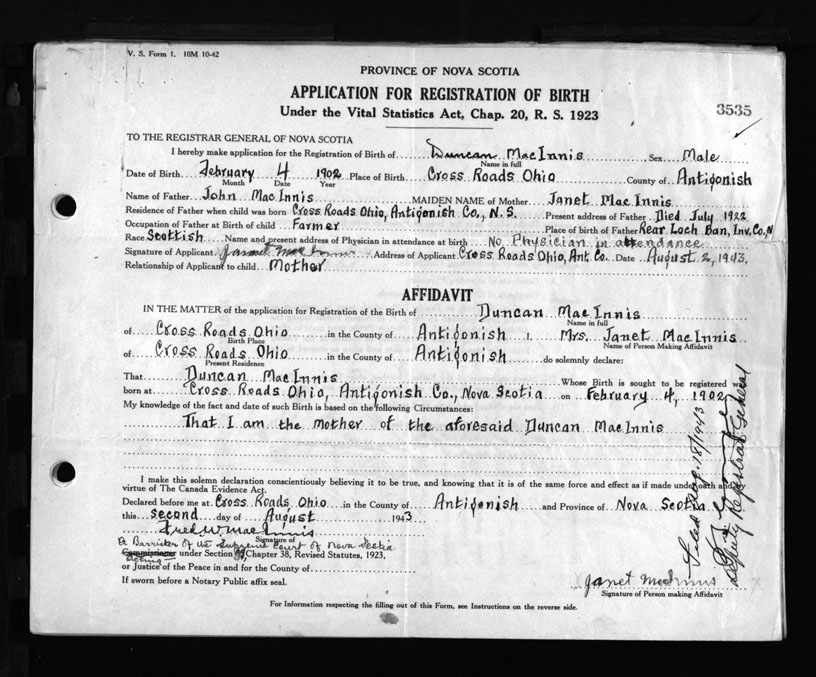 V. S. Form 1. 10M 10-42
PROVINCE OF NOVA SCOTIA
APPLICATION FOR REGISTRATION OF BIRTH
Under the Vital Statistics Act, Chap. 20, R. S. 1923
3535
TO THE REGISTRAR GENERAL OF NOVA SCOTIA
I hereby make application for the Registration of Birth of Duncan MacInnis Sex Male
Name in full
Date of Birth February 4 1902 Place of Birth Cross Roads Ohio County of Antigonish
Month Date Year
Name of Father John MacInnis MAIDEN NAME of Mother Janet MacInnis
Residence of Father when child was born Cross Roads Ohio, Antigonish Co., N.S. Present address of Father Died July 1922
Occupation of Father at Birth of child Farmer Place of birth of Father Rear Loch Ban, Inv. Co., N
Race Scottish Name and present address of Physician in attendance at birth No Physician in attendance
Signature of Applicant Janet MacInnis Address of Applicant Cross Roads Ohio, Ant. Co. Date August 2, 1943.
Relationship of Applicant to child Mother
AFFIDAVIT
IN THE MATTER of the application for Registration of the Birth of Duncan MacInnis
Name in full
of Cross Roads Ohio in the County of Antigonish I, Mrs. Janet MacInnis
Birth Place Name of Person Making Affidavit
of Cross Roads Ohio in the County of Antigonish do solemnly declare:
Present Residence
That Duncan MacInnis Whose Birth is sought to be registered was
born at Cross Roads Ohio, Antigonish Co., Nova Scotia on February 4, 1902
My knowledge of the fact and date of such Birth is based on the following Circumstances:
That I am the mother of the aforesaid Duncan MacInnis
I make this solemn declaration conscientiously believing it to be true, and knowing that it is of the same force and effect as if made under oath and by
virtue of The Canada Evidence Act.
Declared before me at Cross Roads Ohio in the County of Antigonish and Province of Nova Scotia
this second day of August 1943
Fred. W. MacInnis
Signature of
A Barrister of the Supreme Court of Nova Scotia
Commissioner under Section 39 Chapter 38, Revised Statutes, 1923,
acting
or Justice of the Peace in and for the County of
If sworn before a Notary Public affix seal.
Janet MacInnis
Signature of Person making Affidavit
For Information respecting the filling out of this Form, see Instructions on the reverse side.
Filed Aug. 18/1943
Deputy Registrar General